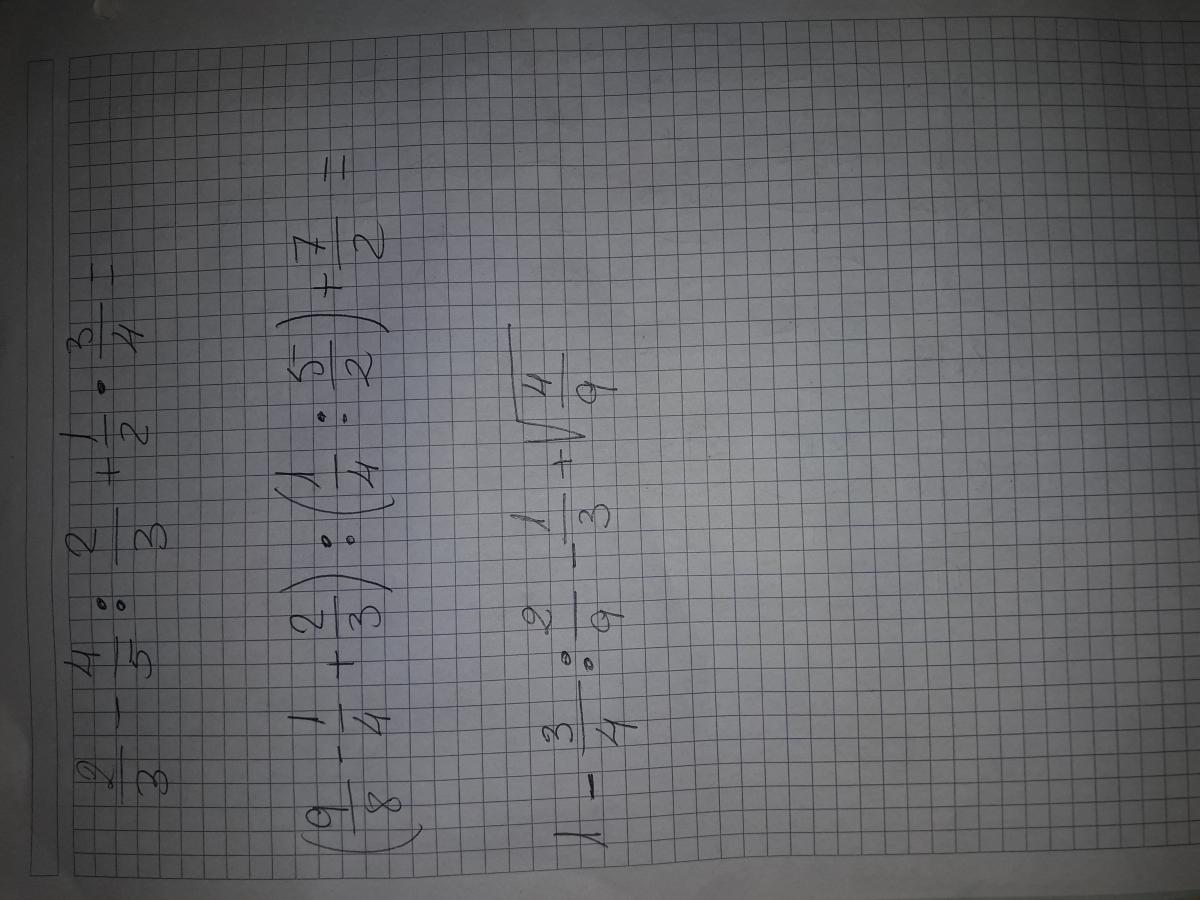 2/3 - 4/5 : 2/3 + 1/2 · 3/4 =
(9/8 - 1/4 + 2/3) : (1/4 : 5/2) + 7/2 =
1 - 3/4 : 2/9 - 1/3 + √4/9